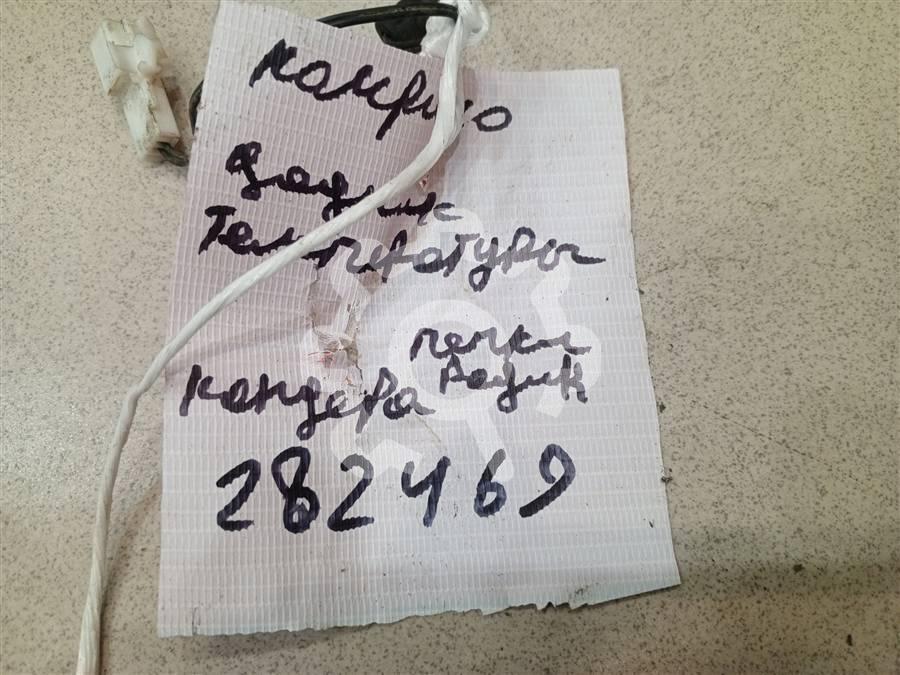 Камрюю
Дадчик
Температуры
печки
кондера радик
282469